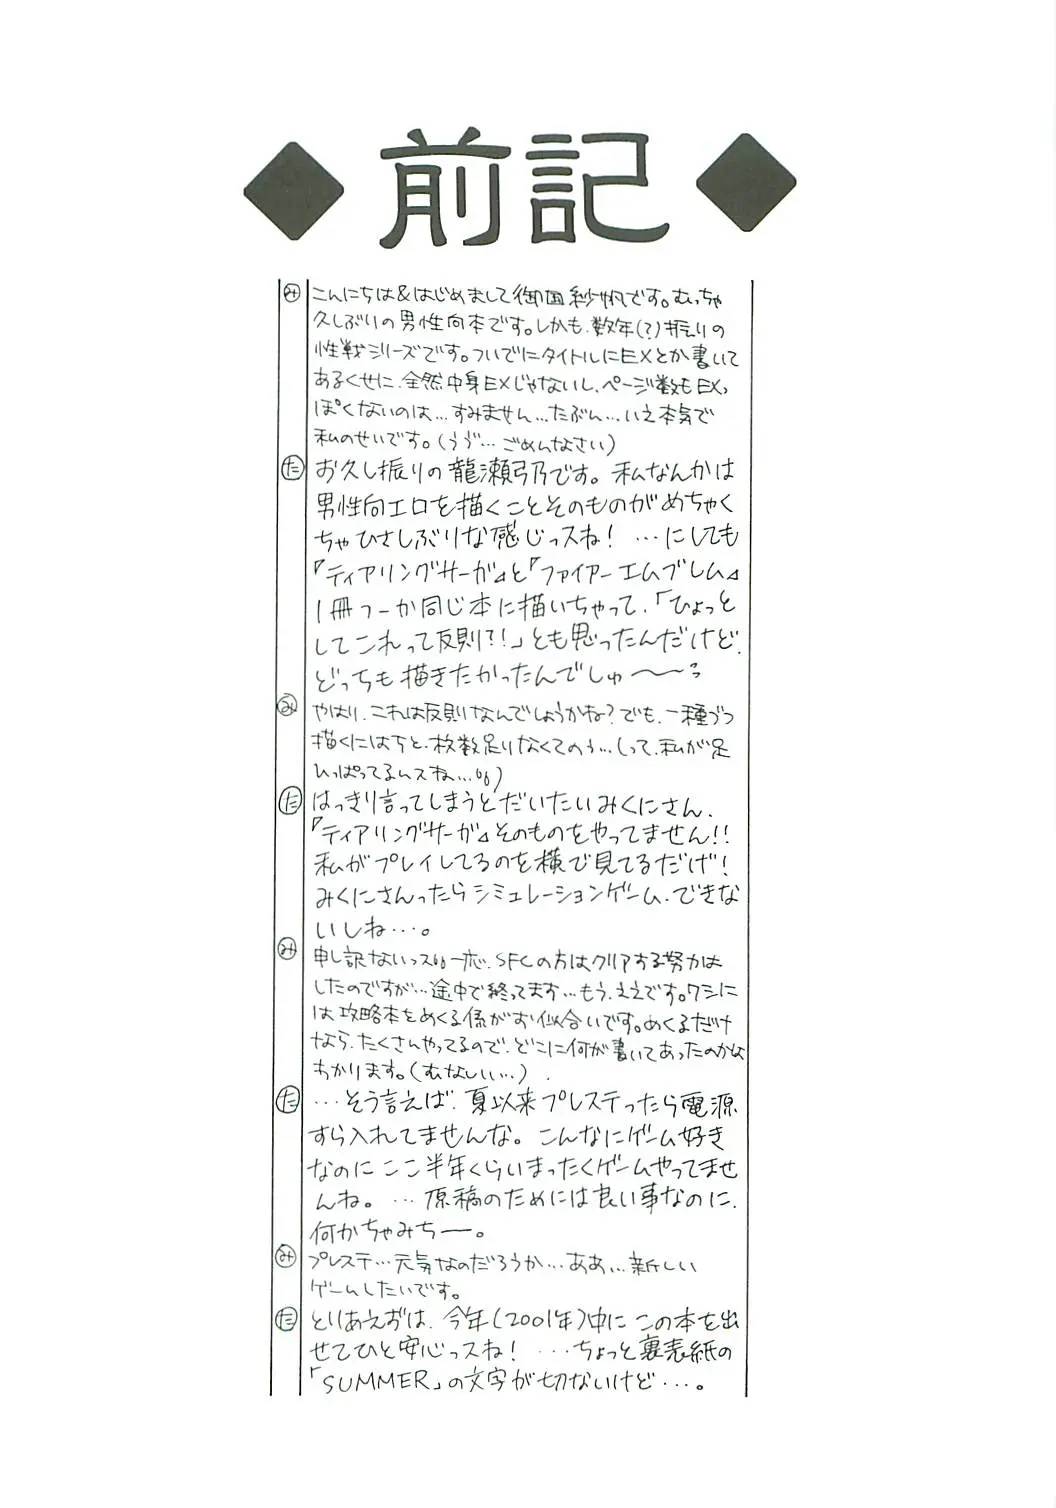 ◆前記◆
み こんにちは&はじめまして御国紗帆です。むっちゃ
久しぶりの男性向本です。しかも、数年(?)振りの
性戦シリーズです。ついでにタイトルにEXとか書いて
あるくせに、全然中身EXじゃないし、ページ数もEXっ
ぽくないのは…すみません…たぶん…いえ本気で
私のせいです。(うゔ…ごめんなさい)
た お久し振りの龍瀬弓乃です。私なんかは
男性向エロを描くことそのものがめちゃく
ちゃひさしぶりな感じっスね! …にしても
『ティアリングサーガ』と『ファイアーエムブレム』
1冊つーか同じ本に描いちゃって、「ひょっと
してこれって反則?!」とも思ったんだけど、
どっちも描きたかったんでしゅ〜〜
み やはり、これは反則なんでしょうかね?でも、一種づつ
描くにはちと、枚数足りなくてのぅ…(って、私が足
ひっぱってるんスね…)
た はっきり言ってしまうとだいたいみくにさん、
『ティアリングサーガ』そのものをやってません!!
私がプレイしてるのを横で見てるだけ!
みくにさんったらシミュレーションゲーム、できな
いしね…。
み 申し訳ないっス 一応、SFCの方はクリアする努力は
したのですが…途中で終ってます…もう、ええです。ワシに
は攻略本をめくる係がお似合いです。めくるだけ
なら、たくさんやってるので、どこに何が書いてあったのかわ
かります。(むなしい…)
た …そう言えば、夏以来プレステったら電源
すら入れてませんな。こんなにゲーム好き
なのにここ半年くらいまったくゲームやってませ
んね。…原稿のためには良い事なのに、
何かちゃみちー。
み プレステ…元気なのだろうか…ああ…新しい
ゲームしたいです。
た とりあえずは、今年(2001年)中にこの本を出
せてひと安心っスね! …ちょっと裏表紙の
「SUMMER」の文字が切ないけど…。